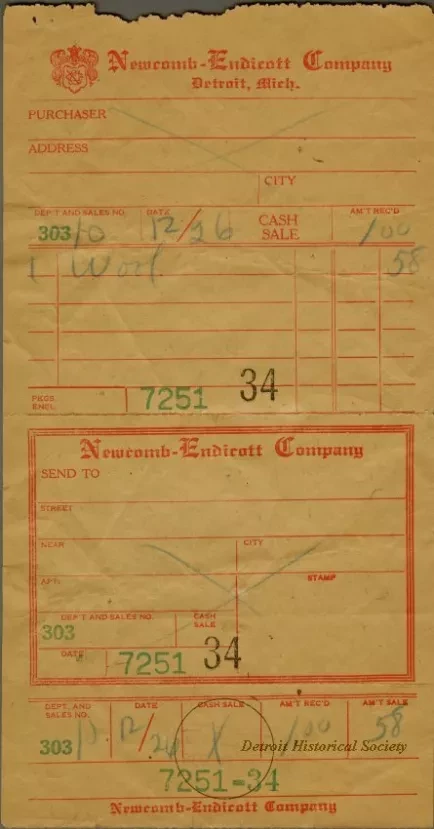 Newcomb-Endicott Company
Detroit, Mich.
PURCHASER
ADDRESS
CITY
DEP'T AND SALES NO. DATE CASH SALE AM'T REC'D
303 10 12/26 1 00
1 Wool 58
PKGS. ENCL. 7251 34
Newcomb-Endicott Company
SEND TO
STREET
NEAR CITY
APT. STAMP
DEP'T AND SALES NO. CASH SALE
303
DATE 7251 34
DEPT. AND SALES NO. DATE CASH SALE AM'T REC'D AM'T SALE
303 12/26 X 1 00 58
Detroit Historical Society
7251-34
Newcomb-Endicott Company